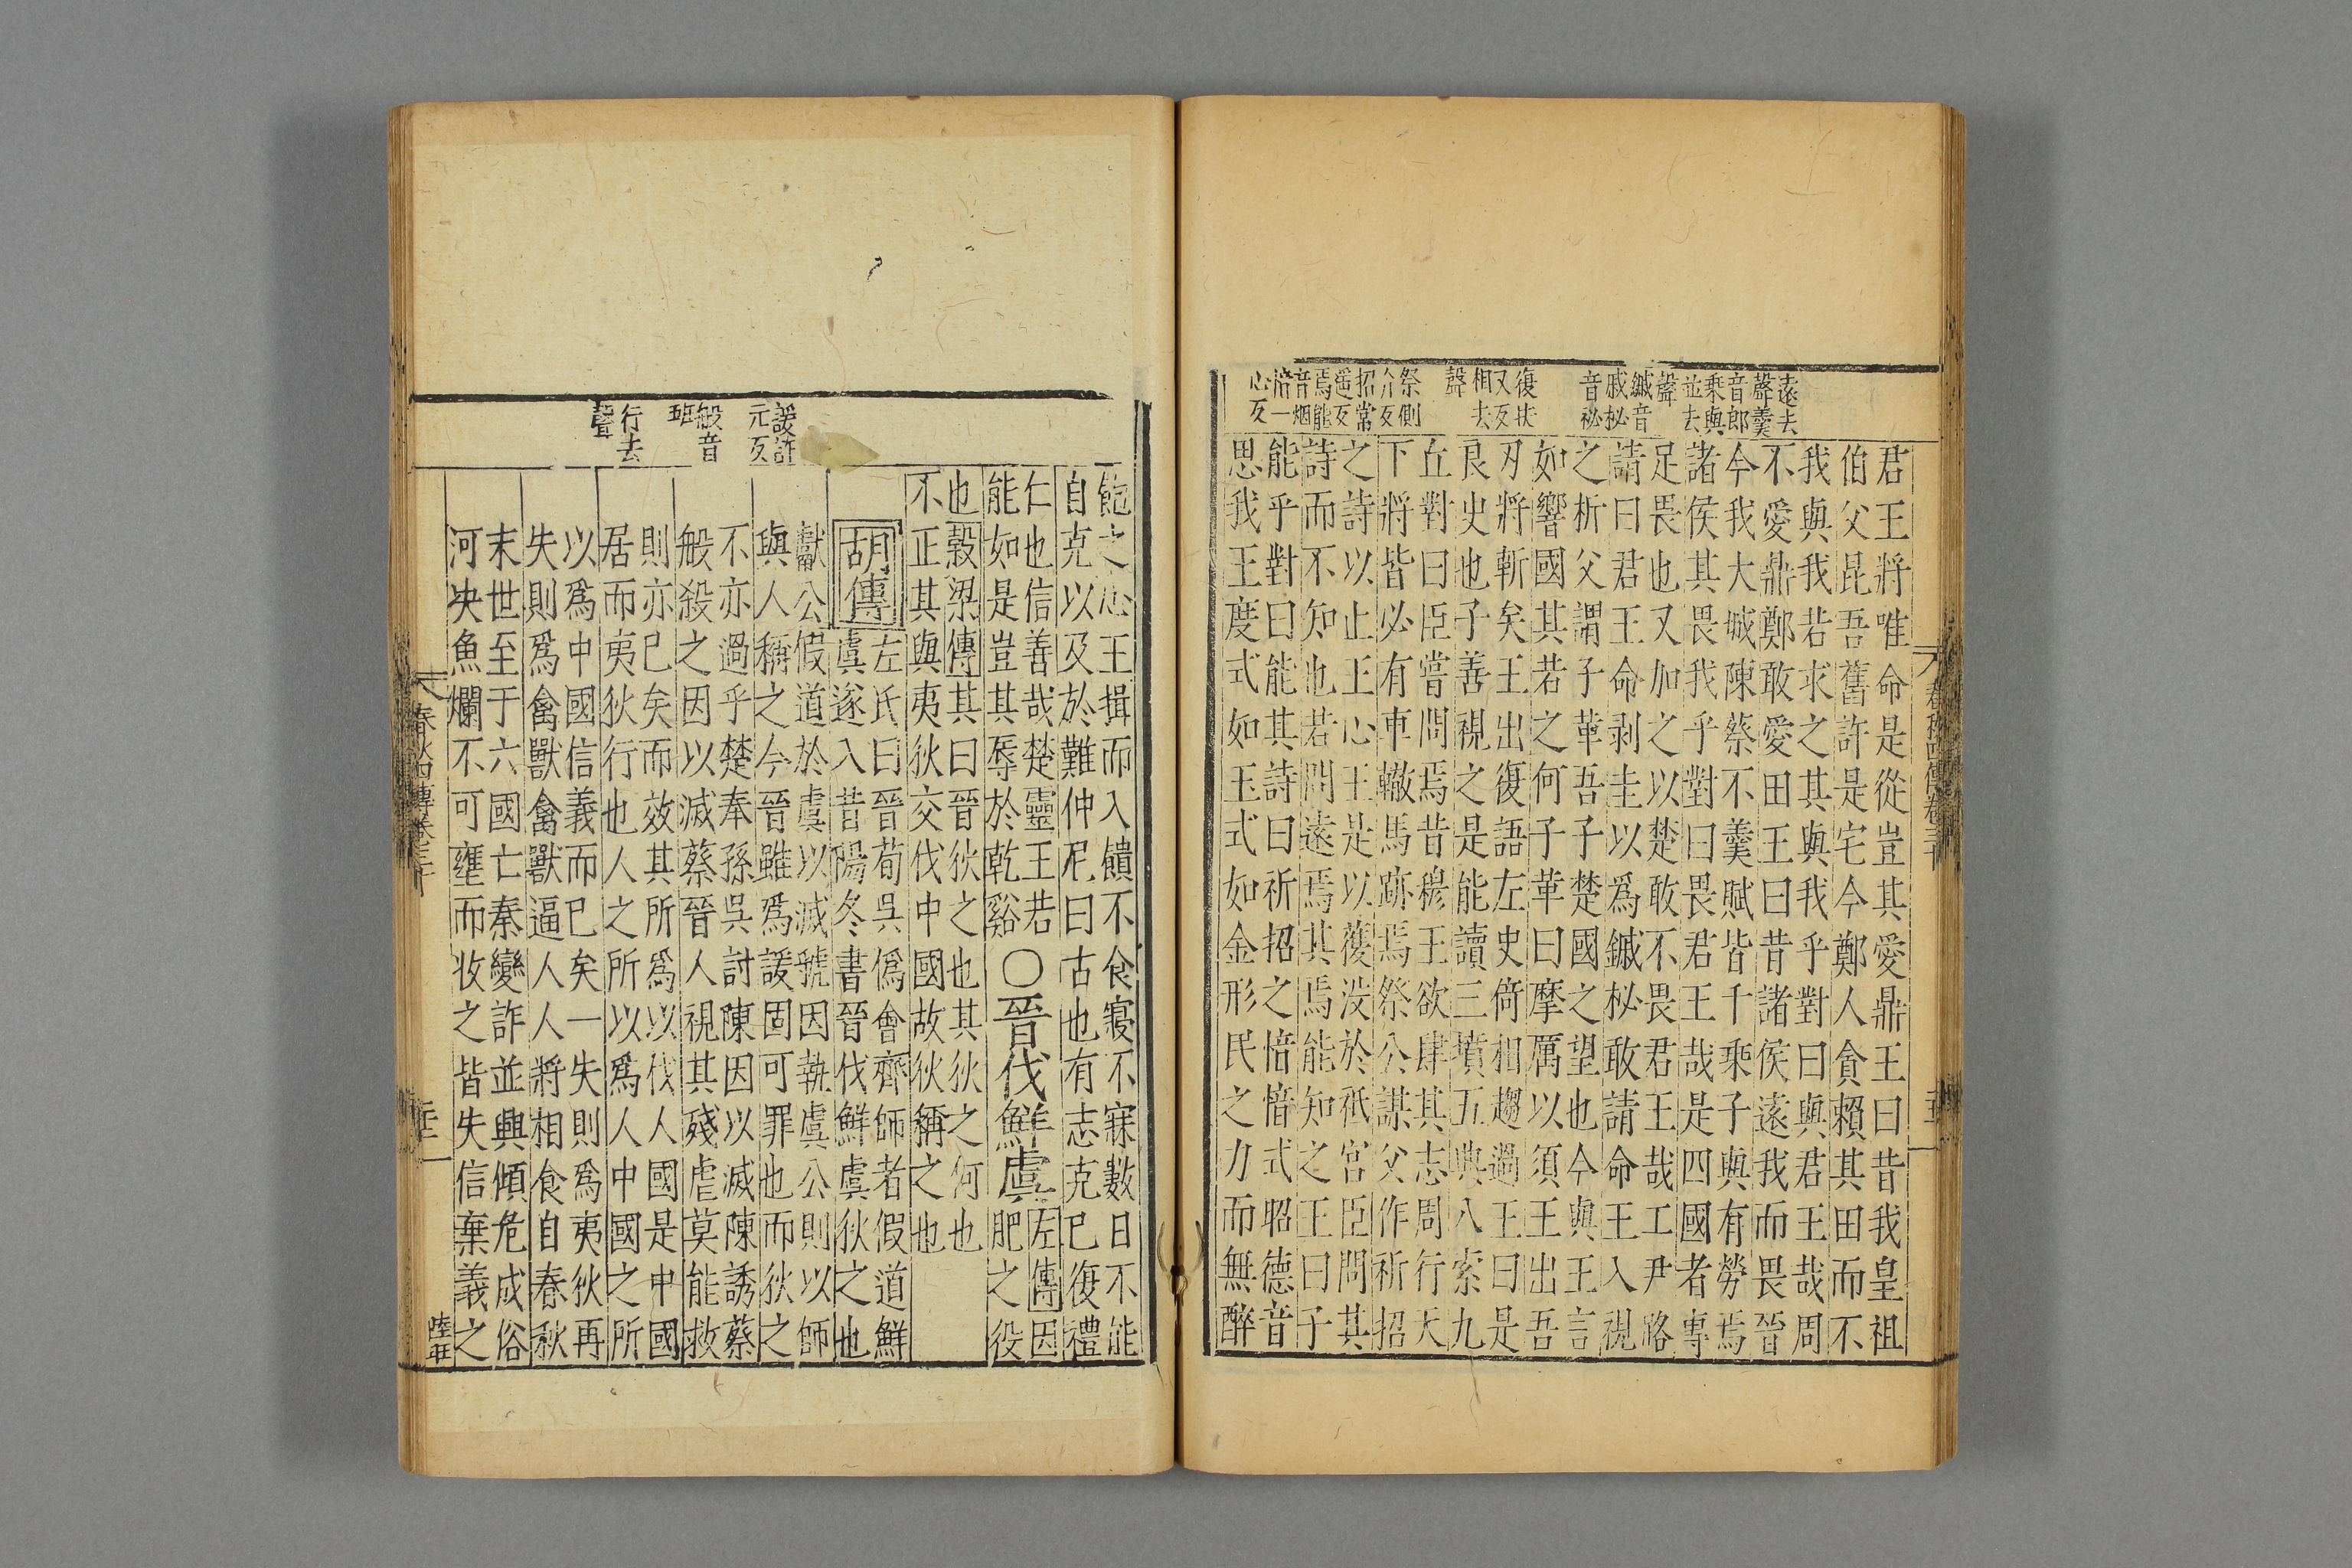 遠去
聲羹
音郎
乘與
並去
聲
鏚音
戚柲
音祕
復扶
又反
相去
聲
祭側
介反
招常
遥反
焉能
音烟
愔一
心反
君王將唯命是從豈其愛鼎王曰昔我皇祖
伯父昆吾舊許是宅今鄭人貪賴其田而不
我與我若求之其與我乎對曰與君王哉周
不愛鼎鄭敢愛田王曰昔諸侯遠我而畏晉
今我大城陳蔡不羹賦皆千乘子與有勞焉
諸侯其畏我乎對曰畏君王哉是四國者專
足畏也又加之以楚敢不畏君王哉工尹路
請曰君王命剥圭以爲鏚柲敢請命王入視
之析父謂子革吾子楚國之望也今與王言
如響國其若之何子革曰摩厲以須王出吾
刃將斬矣王出復語左史倚相趨過王曰是
良史也子善視之是能讀三墳五典八索九
丘對曰臣嘗問焉昔穆王欲肆其志周行天
下將皆必有車轍馬跡焉祭公謀父作祈招
之詩以止王心王是以獲没於祗宮臣問其
詩而不知也若問遠焉其焉能知之王曰子
能乎對曰能其詩曰祈招之愔愔式昭德音
思我王度式如玉式如金形民之力而無醉
春秋四傳卷三十
飽之心王揖而入饋不食寢不寐數日不能
自克以及於難仲尼曰古也有志克已復禮
仁也信善哉楚靈王若
能如是豈其辱於乾谿
〇晉伐鮮虞
左傳因
肥之役
也穀梁傳其曰晉狄之也其狄之何也
不正其與夷狄交伐中國故狄稱之也
胡傳
左氏曰晉荀吳僞會齊師者假道鮮
虞遂入昔陽冬書晉伐鮮虞狄之也
獻公假道於虞以滅虢因執虞公則以師
與人稱之今晉雖爲諼固可罪也而狄之
不亦過乎楚奉孫吳討陳因以滅陳誘蔡
般殺之因以滅蔡晉人視其殘虐莫能救
則亦已矣而效其所爲以伐人國是中國
居而夷狄行也人之所以爲人中國之所
以爲中國信義而已矣一失則爲夷狄再
失則爲禽獸禽獸逼人人將相食自春秋
末世至于六國亡秦變詐並興傾危成俗
河決魚爛不可壅而收之皆失信棄義之
諼許
元反
般音
班
行去
聲
春秋四傳卷三十